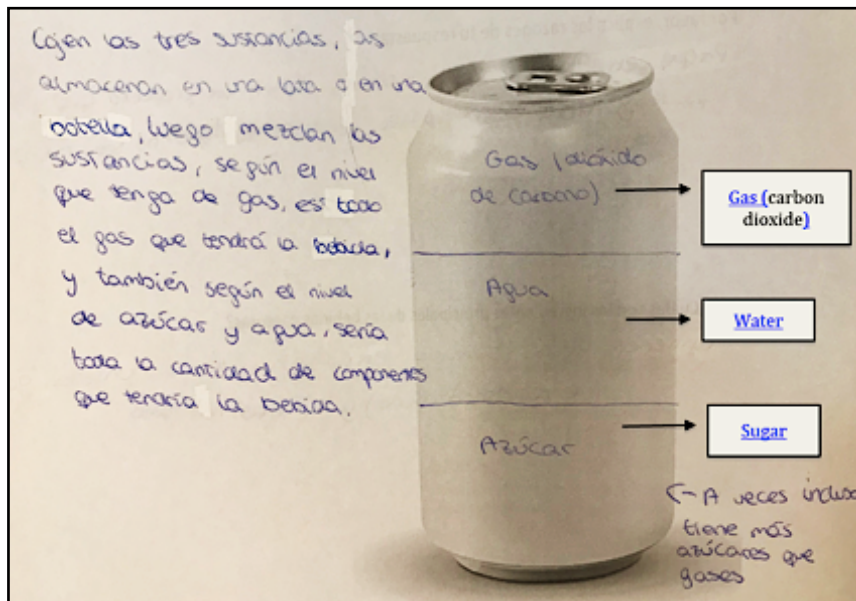 Cojen las tres sustancias, as
almacenan en una lata o en una
botella, luego mezclan las
sustancias, según el nivel
que tenga de gas, es todo
el gas que tendrá la bebida,
y también según el nivel
de azúcar y agua, sería
toda la cantidad de componentes
que tendría la bebida.
Gas (dióxido
de carbono)
Gas (carbon
dioxide)
Agua
Water
Azúcar
Sugar
A veces incluso
tiene más
azúcares que
gases